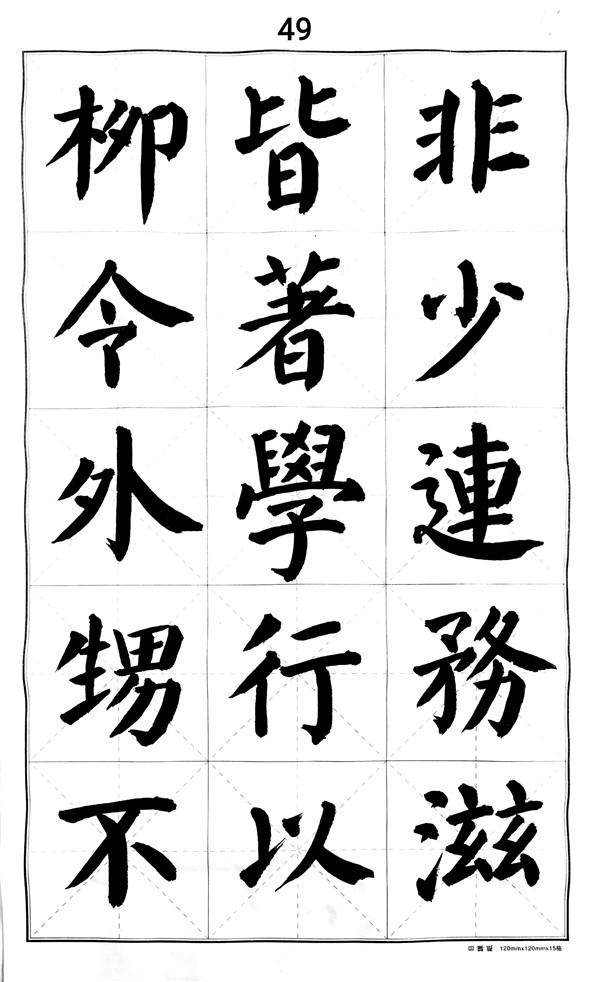 49
非少連務滋
皆著學行以
柳令外甥不
120mmx120mmx15格